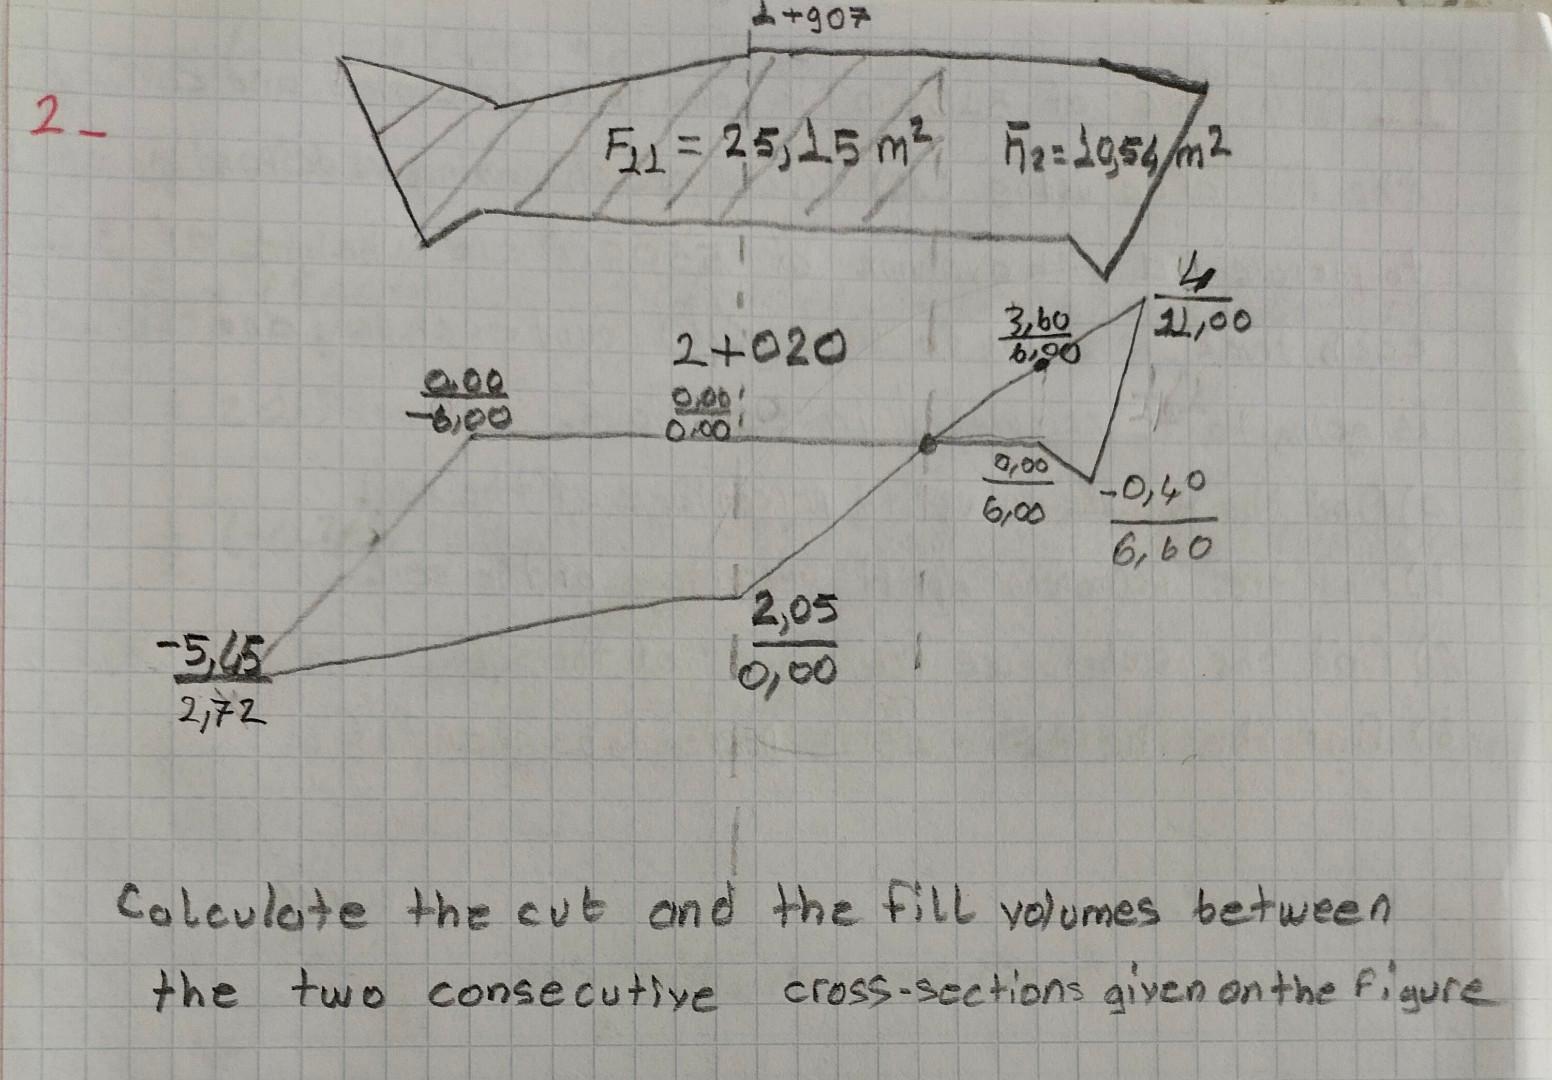 1+907
2-
F11 = 25,15 m²
F12 = 10,54 m²
4
11,00
3,60
6,00
2+020
0,00
-6,00
0,00
0,00
0,00
6,00
-0,40
6,60
-5,45
2,72
2,05
0,00
Calculate the cut and the fill volumes between
the two consecutive cross-sections given on the figure